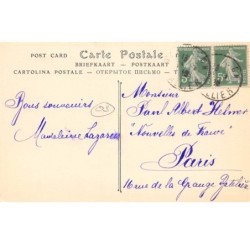 POST CARD Carte Postale
BRIEFKAART - POSTKARTE
CARTOLINA POSTALE - ОТКРЫТОЕ ПИСЬМО - T
Bons souvenirs
Madeleine Lazareff
Monsieur
Paul Albert Helmer
"Nouvelles de France"
Paris
16 rue de la Grange Batelière